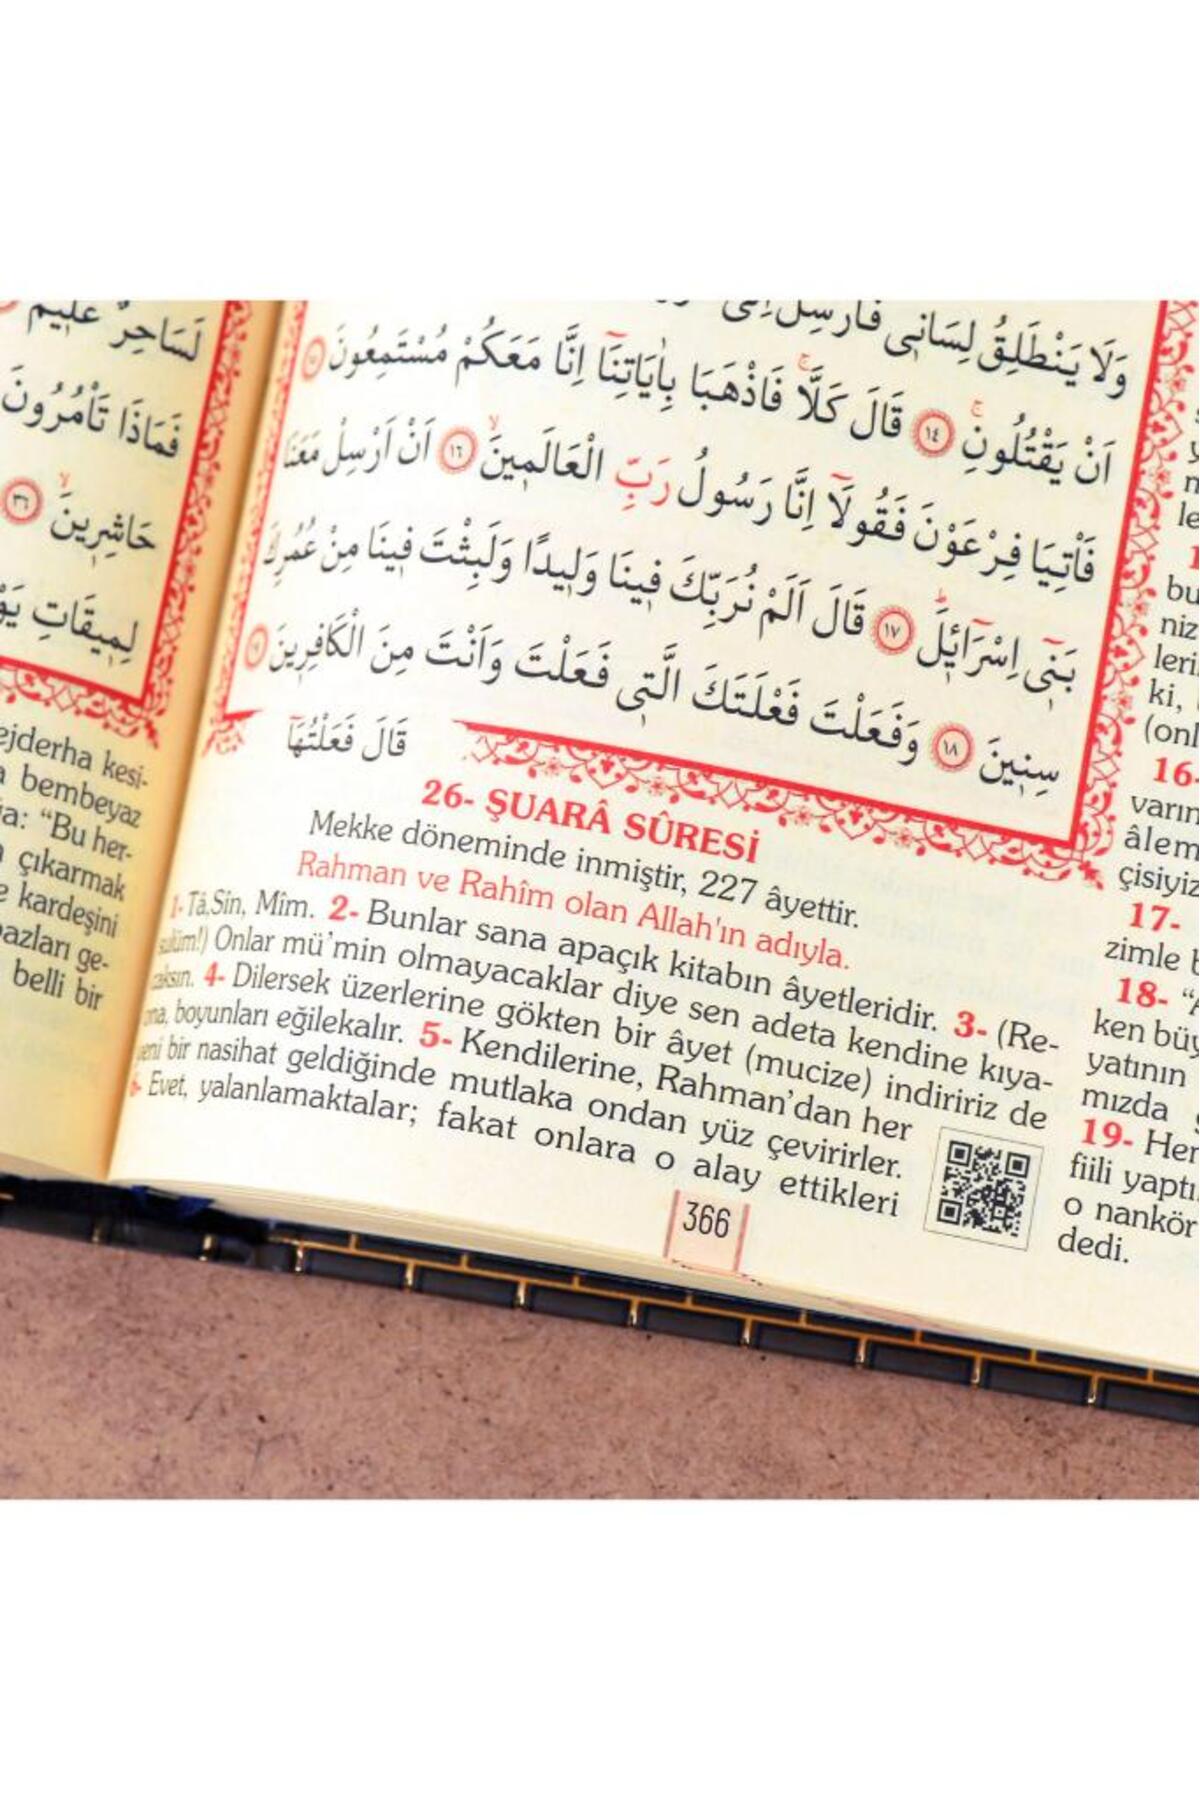 وَلَا يَنْطَلِقُ لِسَانٖي فَاَرْسِلْ اِلٰى
اَنْ يَقْتُلُونِۚ ﴿١٤﴾ قَالَ كَلَّاۚ فَاذْهَبَا بِاٰيَاتِنَٓا اِنَّا مَعَكُمْ مُسْتَمِعُونَ ﴿١٥﴾
فَاْتِيَا فِرْعَوْنَ فَقُولَٓا اِنَّا رَسُولُ رَبِّ الْعَالَمٖينَۙ ﴿١٦﴾ اَنْ اَرْسِلْ مَعَنَا
بَنٖٓي اِسْرَٓائٖلَؕ ﴿١٧﴾ قَالَ اَلَمْ نُرَبِّكَ فٖينَا وَلٖيدًا وَلَبِثْتَ فٖينَا مِنْ عُمُرِكَ
سِنٖينَ ﴿١٨﴾ وَفَعَلْتَ فَعْلَتَكَ الَّتٖي فَعَلْتَ وَاَنْتَ مِنَ الْكَافِرٖينَ ﴿١٩﴾
قَالَ فَعَلْتُهَٓا
26- ŞUARÂ SÛRESİ
Mekke döneminde inmiştir, 227 âyettir.
Rahman ve Rahîm olan Allah'ın adıyla.
1- Tâ,Sîn, Mîm. 2- Bunlar sana apaçık kitabın âyetleridir. 3- (Re-
sulüm!) Onlar mü'min olmayacaklar diye sen adeta kendine kıya-
caksın. 4- Dilersek üzerlerine gökten bir âyet (mucize) indiririz de
ona, boyunları eğilekalır. 5- Kendilerine, Rahman'dan her
yeni bir nasihat geldiğinde mutlaka ondan yüz çevirirler.
6- Evet, yalanlamaktalar; fakat onlara o alay ettikleri
366
لَسَاحِرٌ عَلٖيمٌ
فَمَاذَا تَاْمُرُونَ
حَاشِرٖينَۙ ﴿٣٦﴾
لِمٖيقَاتِ يَوْ
ejderha kesi-
a bembeyaz
"Bu her-
çıkarmak
kardeşini
bazları ge-
belli bir
bu
niz
leri
ki,
(onl
16-
varın
âlem
çisiyiz
17-
zimle b
18- "A
ken büy
yatının
mızda ş
19- Her
fiili yaptı
o nankör
dedi.